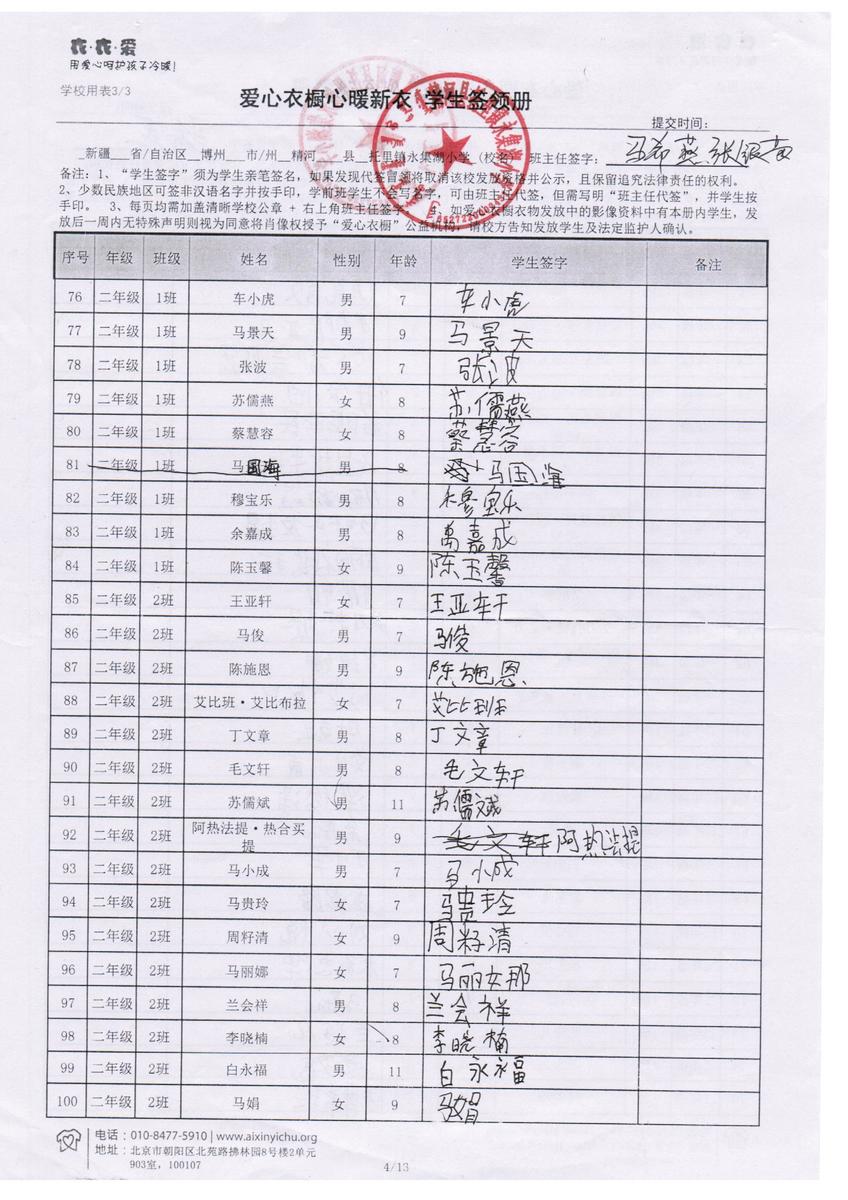 衣·衣·爱
用爱心呵护孩子冷暖!
学校用表3/3
爱心衣橱心暖新衣 学生签领册
提交时间:
新疆 省/自治区 博州 市/州 精河 县 托里镇永集湖小学(校名) 班主任签字: 马希燕 张
备注:1、“学生签字”须为学生亲笔签名,如果发现代签冒领将取消该校发放资格并公示,且保留追究法律责任的权利。
2、少数民族地区可签非汉语名字并按手印,学前班学生不会写名字,可由班主任代签,但需写明“班主任代签”,并学生按
手印。 3、每页均需加盖清晰学校公章 + 右上角班主任签字。 4、如爱心衣橱衣物发放中的影像资料中有本册内学生,发
放后一周内无特殊声明则视为同意将肖像权授予“爱心衣橱”公益机构,请校方告知发放学生及法定监护人确认。
序号 年级 班级 姓名 性别 年龄 学生签字 备注
76 二年级 1班 车小虎 男 7 车小虎
77 二年级 1班 马景天 男 9 马景天
78 二年级 1班 张波 男 7 张波
79 二年级 1班 苏儒燕 女 8 苏儒燕
80 二年级 1班 蔡慧容 女 8 蔡慧容
81 二年级 1班 马国海 男 8 马国海
82 二年级 1班 穆宝乐 男 8 穆宝乐
83 二年级 1班 余嘉成 男 8 嘉成
84 二年级 1班 陈玉馨 女 9 陈玉馨
85 二年级 2班 王亚轩 女 7 王亚轩
86 二年级 2班 马俊 男 7 马俊
87 二年级 2班 陈施恩 男 9 陈施恩
88 二年级 2班 艾比班·艾比布拉 女 7 艾比班
89 二年级 2班 丁文章 男 8 丁文章
90 二年级 2班 毛文轩 男 8 毛文轩
91 二年级 2班 苏儒斌 男 11 苏儒斌
92 二年级 2班 阿热法提·热合买提 男 9 毛文轩 阿热法提
93 二年级 2班 马小成 男 7 马小成
94 二年级 2班 马贵玲 女 7 马贵玲
95 二年级 2班 周籽清 女 9 周籽清
96 二年级 2班 马丽娜 女 7 马丽娜
97 二年级 2班 兰会祥 男 8 兰会祥
98 二年级 2班 李晓楠 女 8 李晓楠
99 二年级 2班 白永福 男 11 白永福
100 二年级 2班 马娟 女 9 马娟
电话:010-8477-5910 | www.aixinyichu.org
地址:北京市朝阳区北苑路拂林园8号楼2单元
903室,100107
4/13